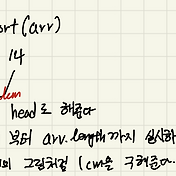 ort(arr)
14
blem
head로 해준다
부터 arr.length까지 실시하
의 그림처럼 1cm을 구해준다..